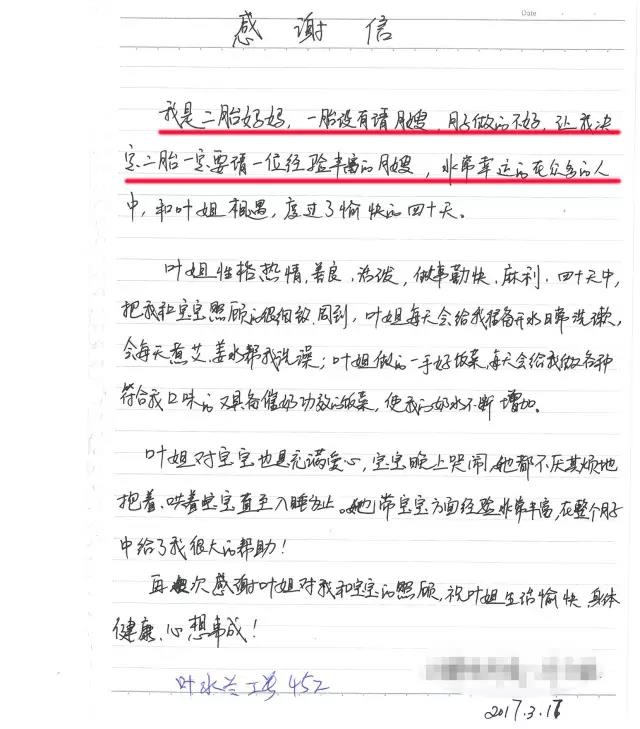 Date
感谢信
我是二胎妈妈，一胎没有请月嫂，月子做的不好，让我决
定二胎一定要请一位经验丰富的月嫂，非常幸运的在众多的人
中，和叶姐相遇，度过了愉快的四十天。
叶姐性格热情、善良、活泼，做事勤快、麻利，四十天中，
把我和宝宝照顾的很细致、周到，叶姐每天会给我准备开水日常洗漱，
会每天煮艾、姜水帮我洗澡；叶姐做的一手好饭菜，每天会给我做各种
符合我口味的又具备催奶功效的饭菜，使我的奶水不断增加。
叶姐对宝宝也是充满爱心，宝宝晚上哭闹，她都不厌其烦地
抱着、哄着宝宝直至入睡为止。她带宝宝方面经验非常丰富，在整个月子
中给了我很大的帮助！
再次感谢叶姐对我和宝宝的照顾，祝叶姐生活愉快 身体
健康、心想事成！
叶水兰 工号 452
2017.3.17